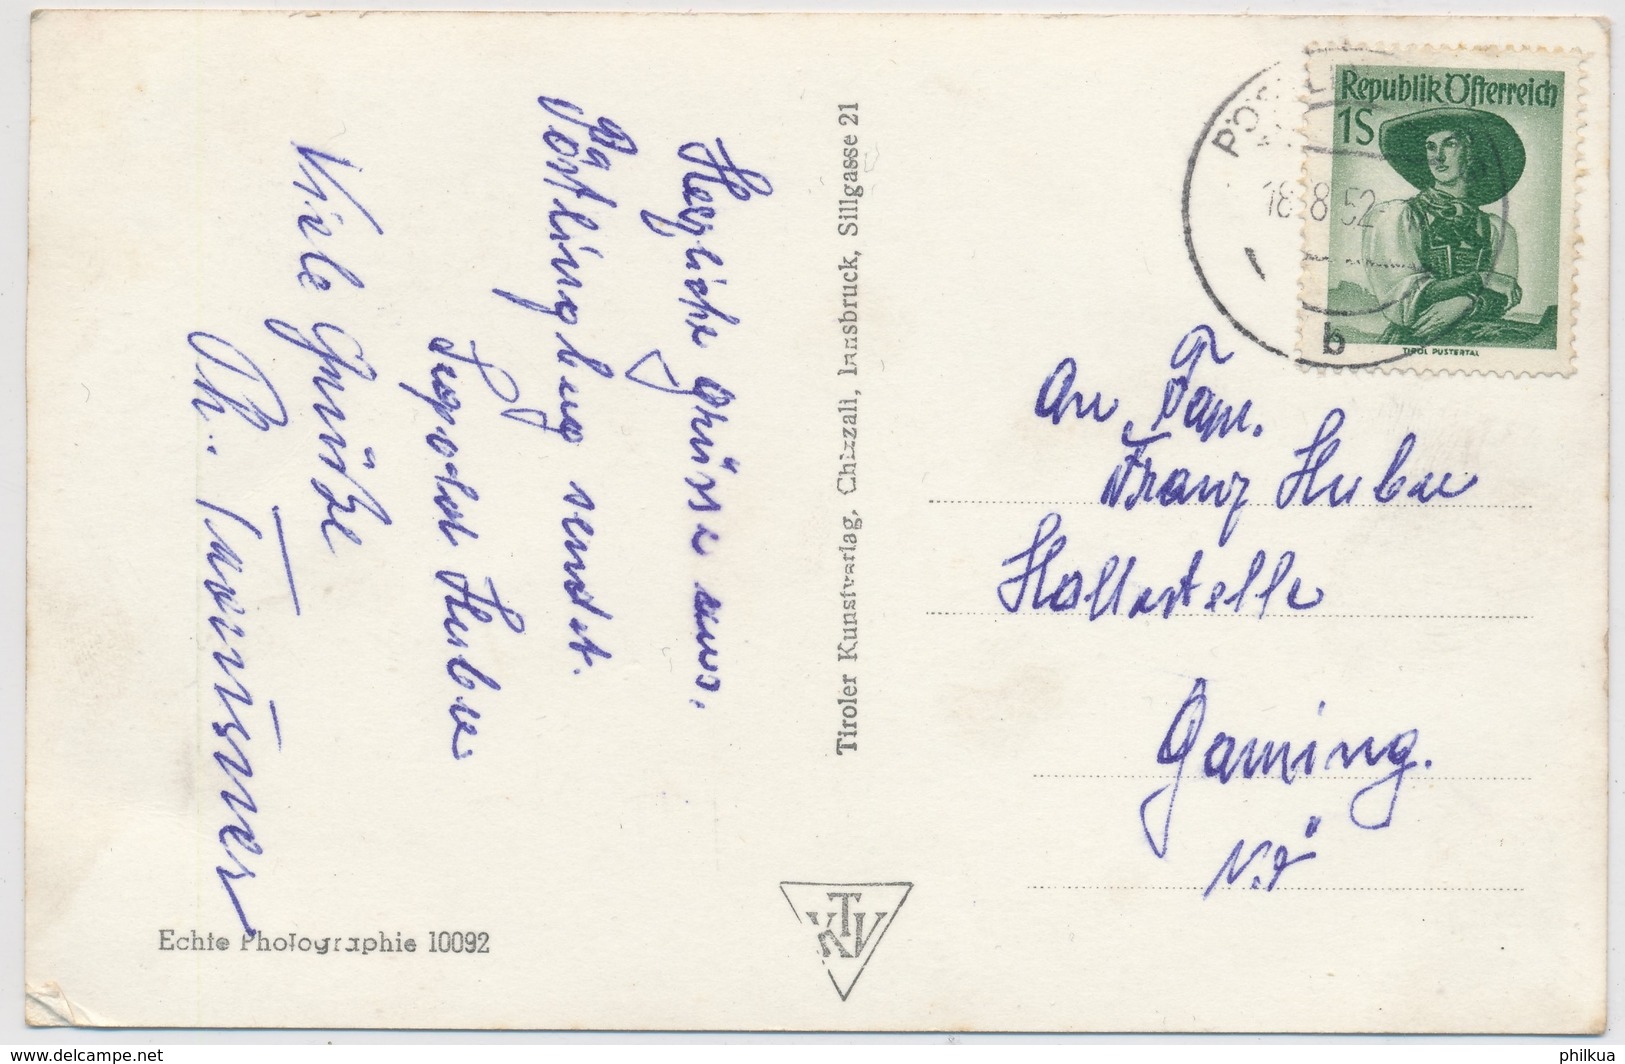 Herzliche Grüsse aus.
Pöstlingberg sendet.
Huber
Viele Grüße
Tiroler Kunstverlag, Chizzali, Innsbruck, Sillgasse 21
Echte Photographie 10092
TKV
Republik Österreich
1S
TIROL PUSTERTAL
18.8.52
b
An Fam.
Franz Huber
Hollastelle
Gaming.
N.Ö
delcampe.net
philkua